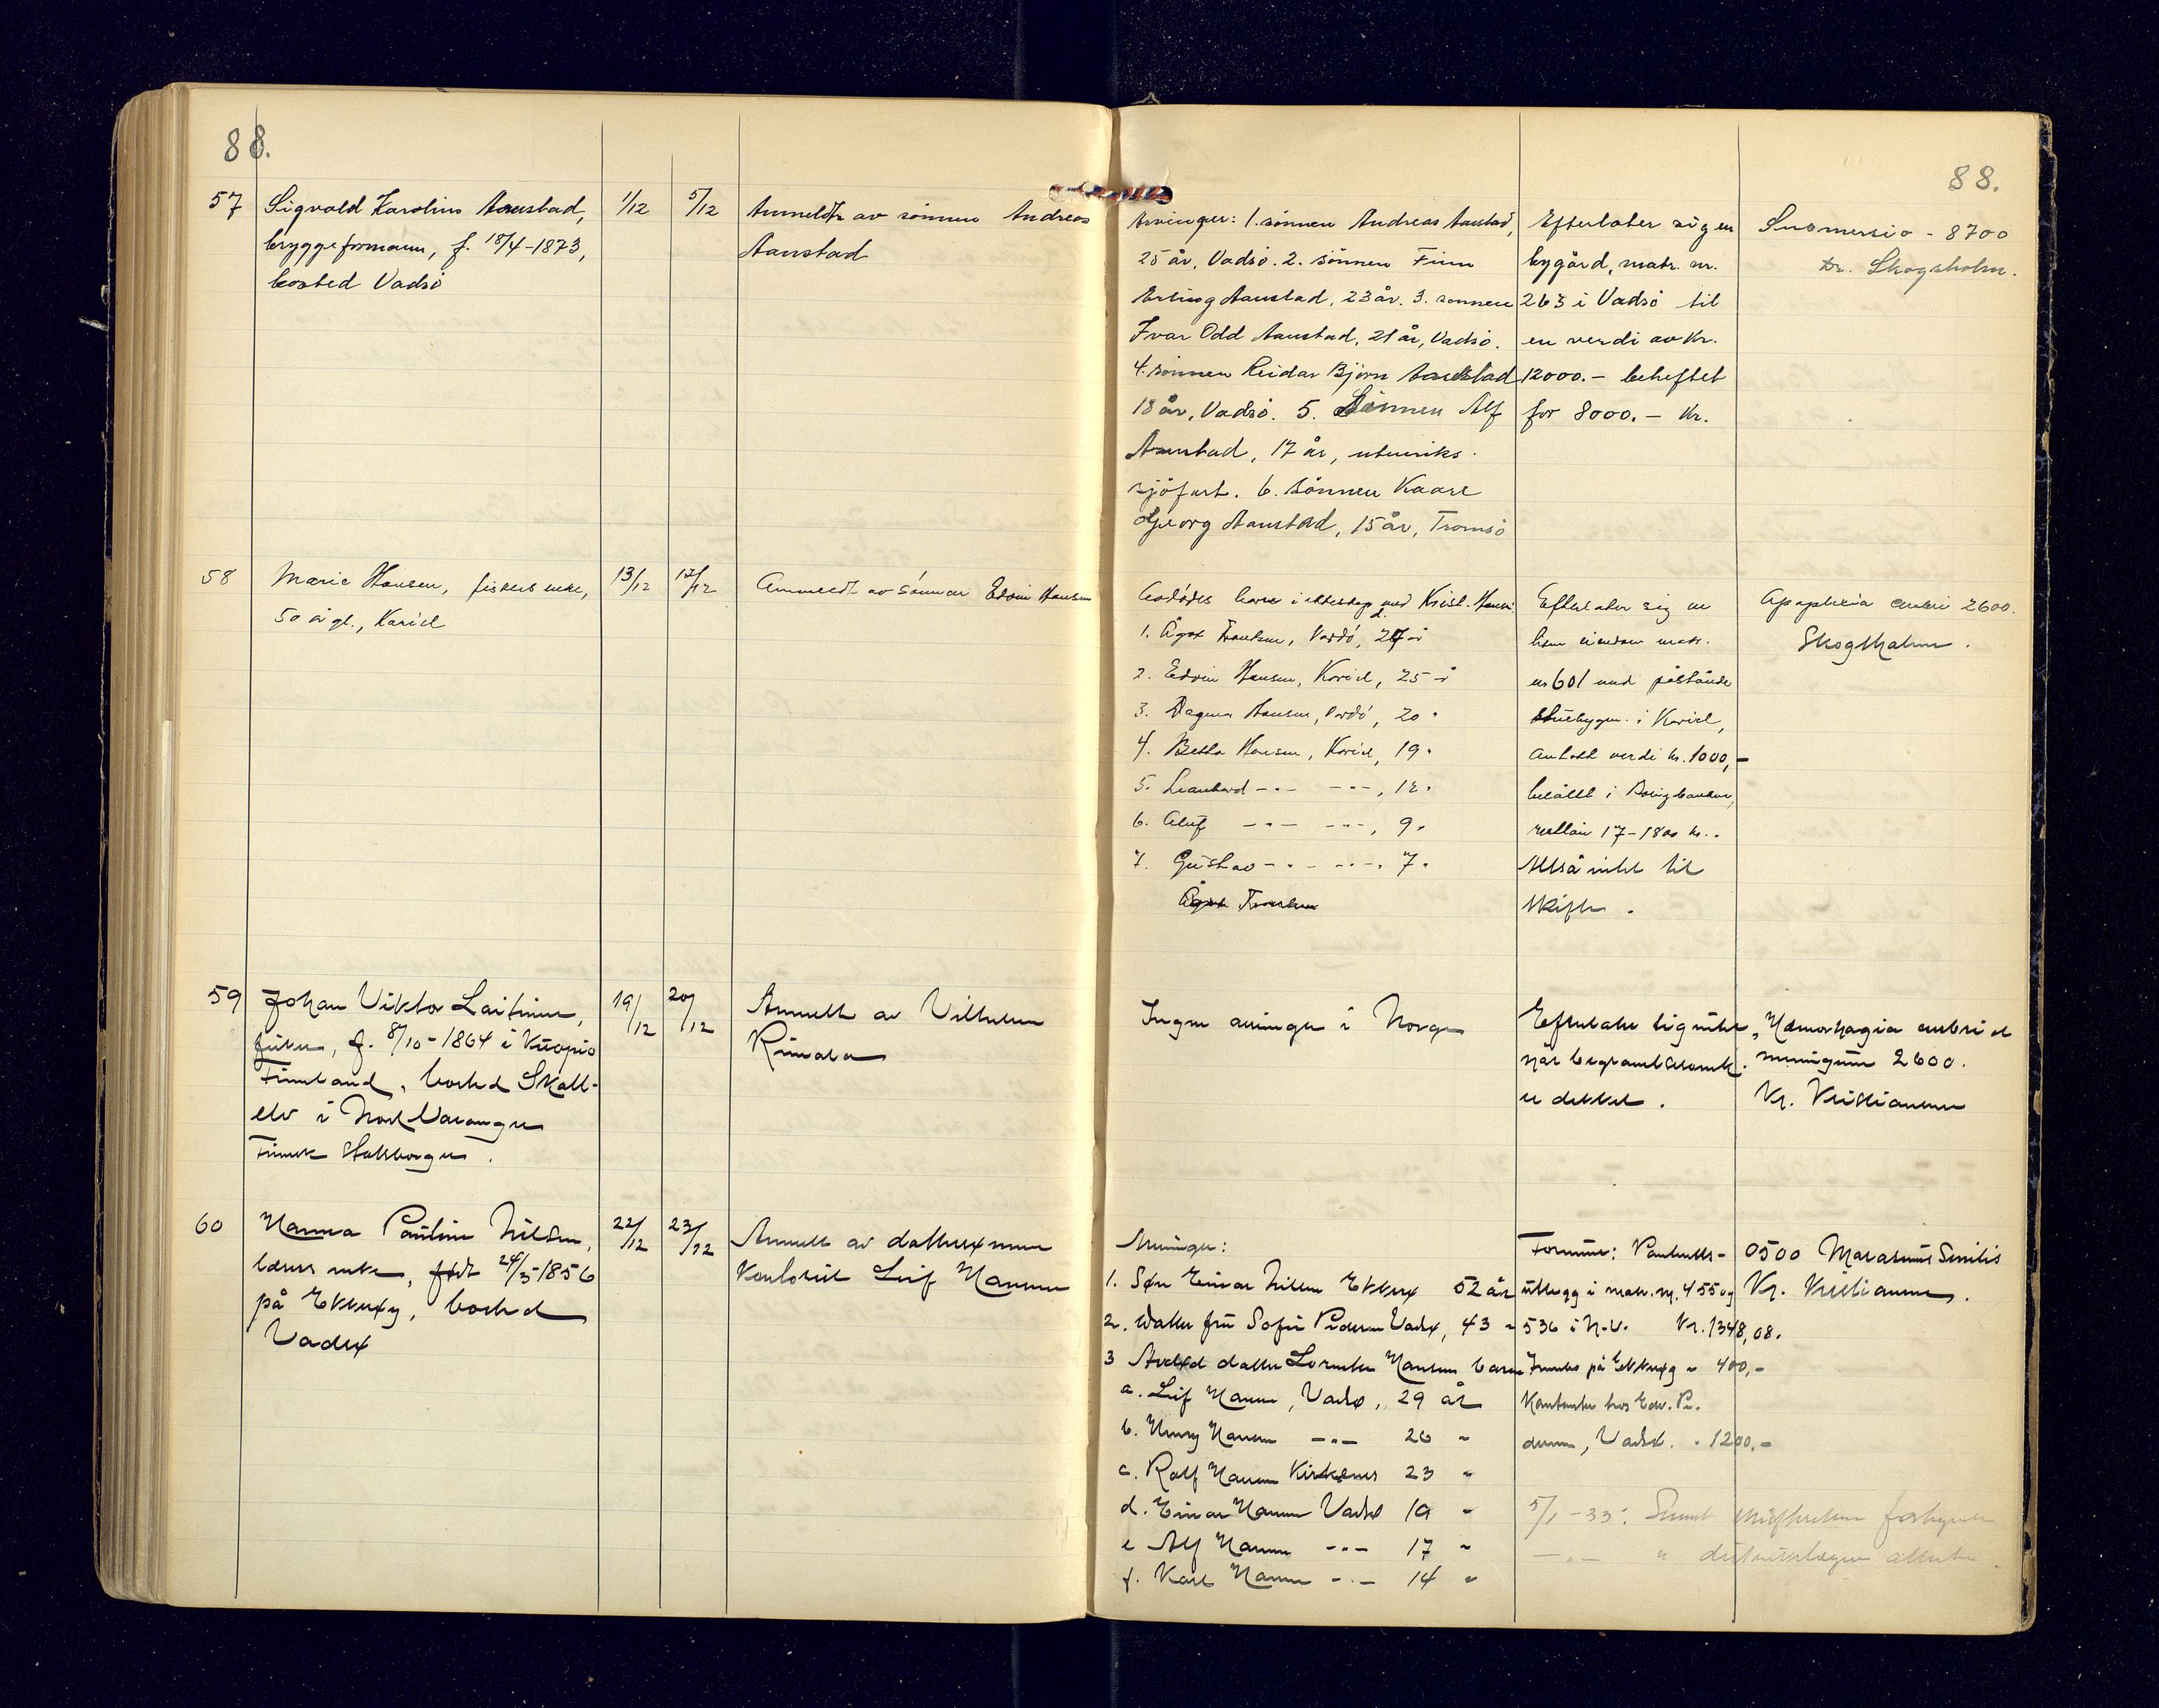 88.
88.
57
Sigvald Karolius Aanstad,
bryggeformann, f. 18/4-1873,
bosted Vadsö
1/12
5/12
Anmeldt av sönnen Andreas
Aanstad
Arvinger: 1. sönnen Andreas Aanstad,
25 år, Vadsö. 2. sönnen Finn
Erling Aanstad, 23 år. 3. sönnen
Ivar Odd Aanstad, 21 år, Vadsö.
4. sönnen Reidar Björn Aanstad
18 år, Vadsö. 5. Sönnen Alf
Aanstad, 17 år, utenriks
sjöfart. 6. sönnen Kaare
Georg Aanstad, 15 år, Tromsö
Efterlater sig en
bygård, matr. nr.
263 i Vadsö til
en verdi av kr.
12000.- beheftet
for 8000.- kr.
Submersio - 8700
Dr. Skogsholm.
58
Marie Hansen, fiskers enke,
50 år gl., Kariel
13/12
17/12
Anmeldt av sönnen Edvin Hansen
Avdödes barn i ekteskap med Krist. Hansen
1. Ågot Frantzen, Vardö, 27 år
2. Edvin Hansen, Kariel, 25 år
3. Dagmar Hansen, Vardö, 20 "
4. Betta Hansen, Kariel, 19 "
5. Leonhard -"- -"-, 12 "
6. Aluf -"- -"-, 9 "
7. Gustav -"- -"-, 7 "
Efterlater sig en
liten eiendom matr.
nr 601 med påstående
stuebygn. i Kariel,
antatt verdi kr. 1000,-
belånt i
mellem 17-1800 kr.
Altså intet til
skifte.
Apoplexia cerebri 2600.
Skogsholm.
59
Johan Viktor Laitinen,
f. 8/10-1864 i Kuopio
Finnland, bosted Skall-
elv i Nord Varanger
Finnsk statsborger.
19/12
20/12
Anmeldt av Vilhelm
Ingen arvinger i Norge
Efterlater sig intet
når begravelsesomk.
er dekket.
Hæmorhagia cerebri et
meningium 2600.
Kr. Kristiansen
60
Hanna Pauline Nilsen,
lærers enke, født 24/5-1856
på Ekkerøy, bosted
Vadsø
22/12
23/12
Anmeldt av dattersønnen
Kontorist Leif Hansen
Arvinger:
1. Søn Einar Nilsen Ekkerøy 52 år
2. Datter fru Sofie Pedersen Vadsø, 43 "
3 Avdød datter Hansens barn
a. Leif Hansen, Vadsø, 29 år
b. Henry Hansen -"- 26 "
c. Rolf Hansen Kirkenes 23 "
d. Einar Hansen Vadsø 19 "
e Alf Hansen -"- 17 "
f. Karl Hansen -"- 14 "
Formue: Panteutl-
utlegg i matr. nr. 455 og
536 i N.V. Kr. 1348,08.
på Ekkerøy " 400,-
Kontanter hos Edv. Pe-
dersen, Vadsø. " 1200,-
5/1-33: Sendt skifteretten
-"- " distriktslægen
0500 Marasmus Senilis
Kr. Kristiansen.